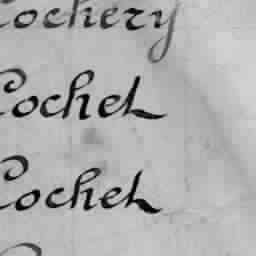 Cochery
Cochet
Cochet